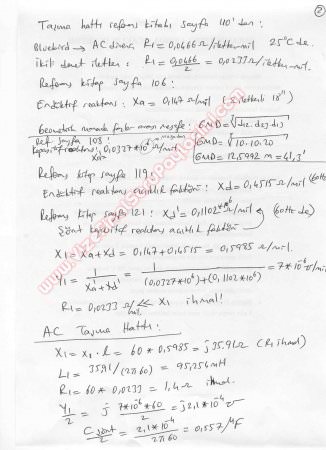 ②
Taşıma hattı referans kitabı sayfa 110'dan:
Bluebird → AC direnci, R1 = 0,0466 Ω/iletken-mil 25°C de.
İkili demet iletken: R1 = 0,0466/2 = 0,0233 Ω/iletken-mil.
Referans kitap sayfa 106:
Endüktif reaktans: Xa = 0,147 Ω/mil (2 iletkenli 18")
Geometrik manada fazlar arası mesafe: GMD = ∛d12.d23.d31
Ref sayfa 108: GMD = ∛10.10.20
Kapasitif reaktans, Xa' 0,0327*10^6 Ω/mil GMD = 12,5992 m = 41,3'
Referans kitap sayfa 119:
Endüktif reaktans açıklık faktörü: Xd = 0,4515 Ω/mil (60Hz
Referans kitap sayfa 121: Xd' = 0,1102*10^6 (60Hz de)
Şönt kapasitif reaktans açıklık faktörü
X1 = Xa + Xd = 0,147 + 0,4515 = 0,5985 Ω/mil.
Y1 = 1/(Xa' + Xd') = 1/((0,0327*10^6)+(0,1102*10^6)) = 7*10^-6 ℧/mil
R1 = 0,0233 Ω/mil << X1 ihmal!
AC Taşıma Hattı:
X1 = X1 . l = 60 * 0,5985 = j35.91 Ω (R1 ihmal)
L1 = 35.91/(2π60) = 95,254 mH
R1 = 60 * 0,0233 = 1,4 Ω ihmal.
Y1/2 = j 7*10^-6*60/2 = j2,1*10^-4 ℧
C şönt/2 = 2,1*10^-4/2π60 = 0,557 μF